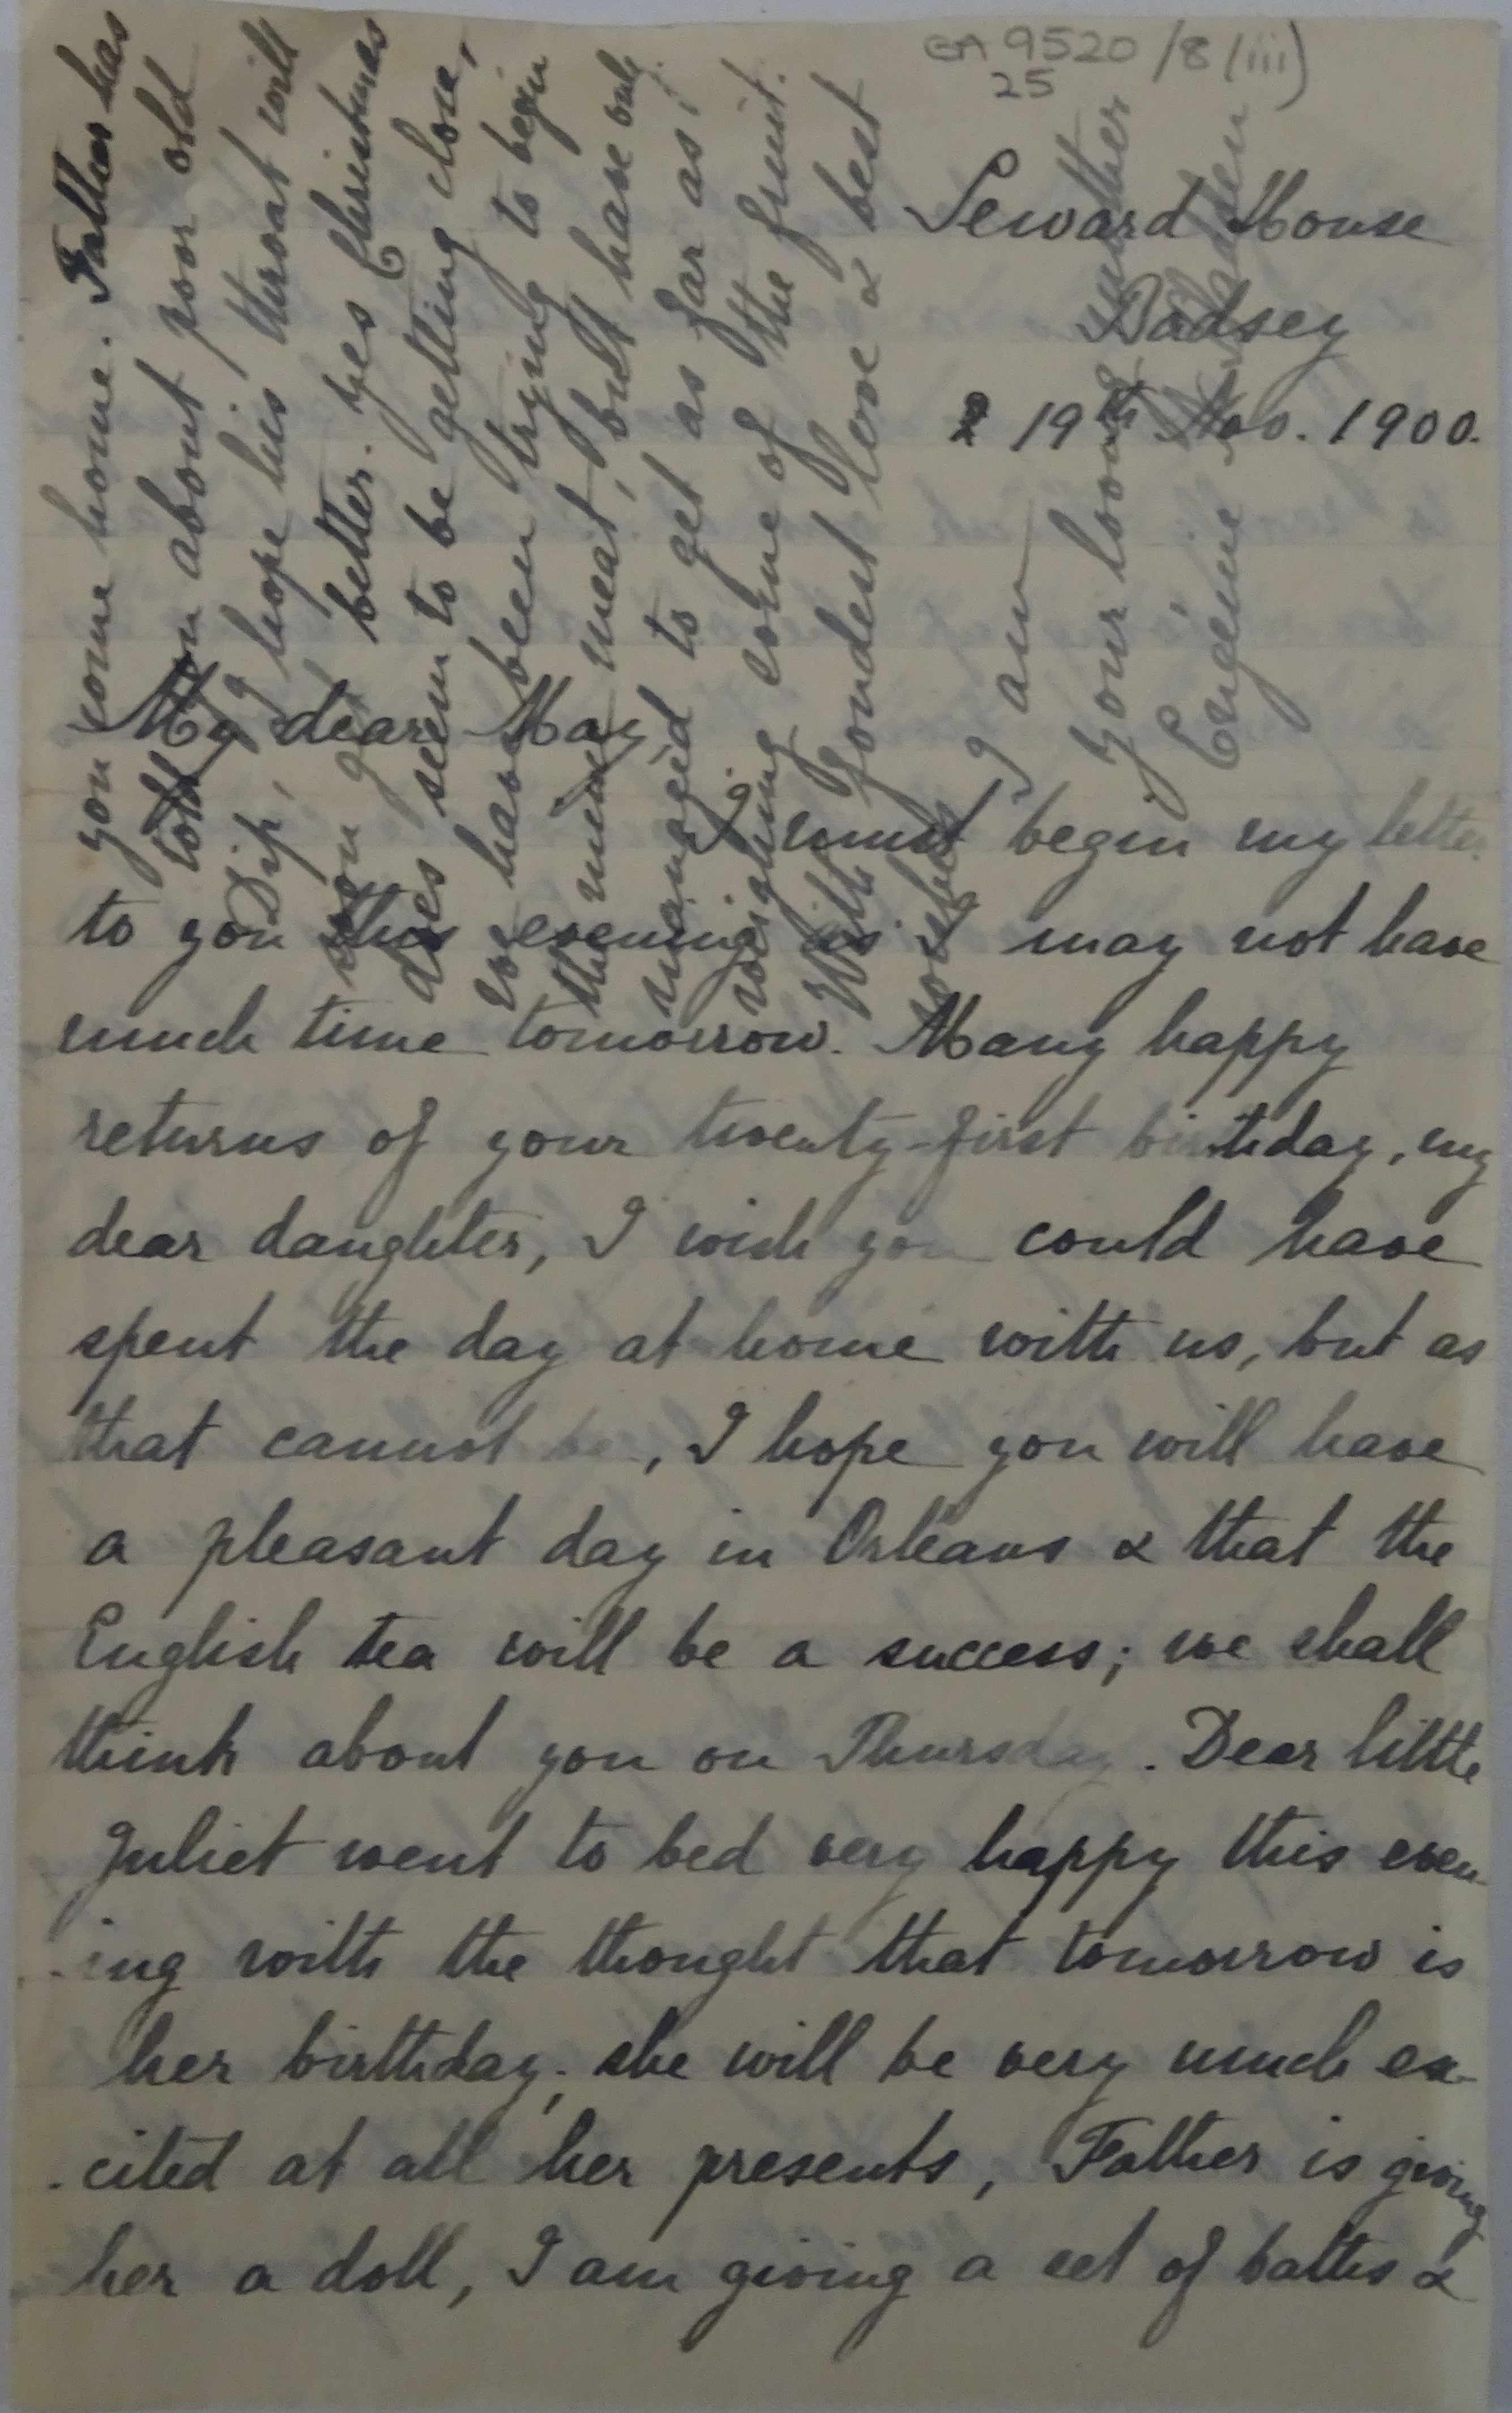 BA 9520/8/(iii)
25
Seward House
Badsey
19th Nov. 1900.
My dear May,
I must begin my letter
to you this evening as I may not have
much time tomorrow. Many happy
returns of your twenty-first birthday, my
dear daughter, I wish you could have
spent the day at home with us, but as
that cannot be, I hope you will have
a pleasant day in Orleans & that the
English tea will be a success; we shall
think about you on Thursday. Dear little
Juliet went to bed very happy this even-
-ing with the thought that tomorrow is
her birthday; she will be very much ex-
-cited at all her presents, Father is giving
her a doll, I am giving a set of baths &
you come home. Father has
told you about poor old
Dip, I hope his throat will
soon get better. Yes Christmas
does seem to be getting close,
we have been trying to begin
the mince meat, but have only
managed to get as far as
weighing some of the fruit.
With fondest love & best
wishes I am
Your loving mother
Eugénie Sladden